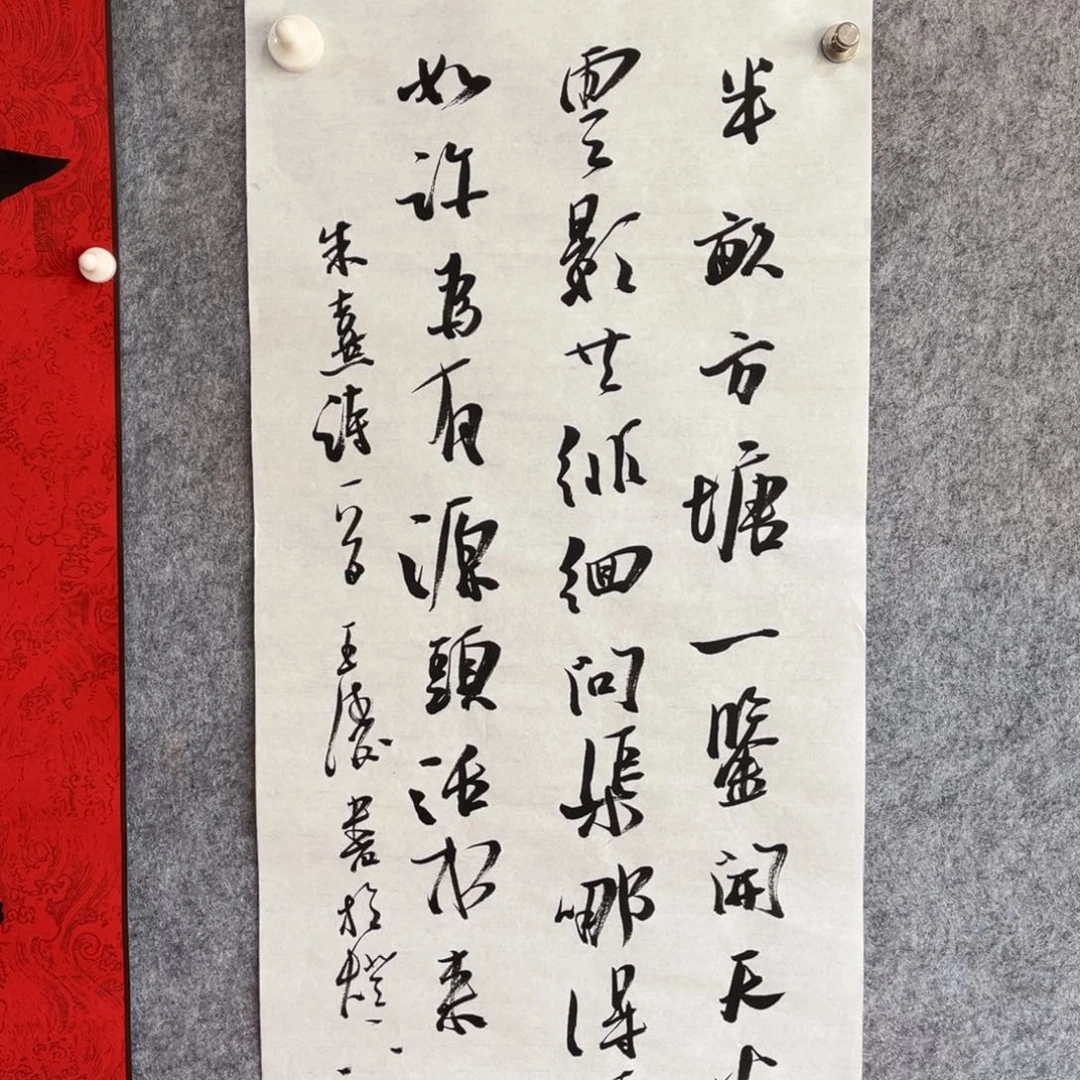 半畝方塘一鑒開天
雲影共徘徊問渠哪得
如許為有源頭活水來
朱熹詩一首 王 書於